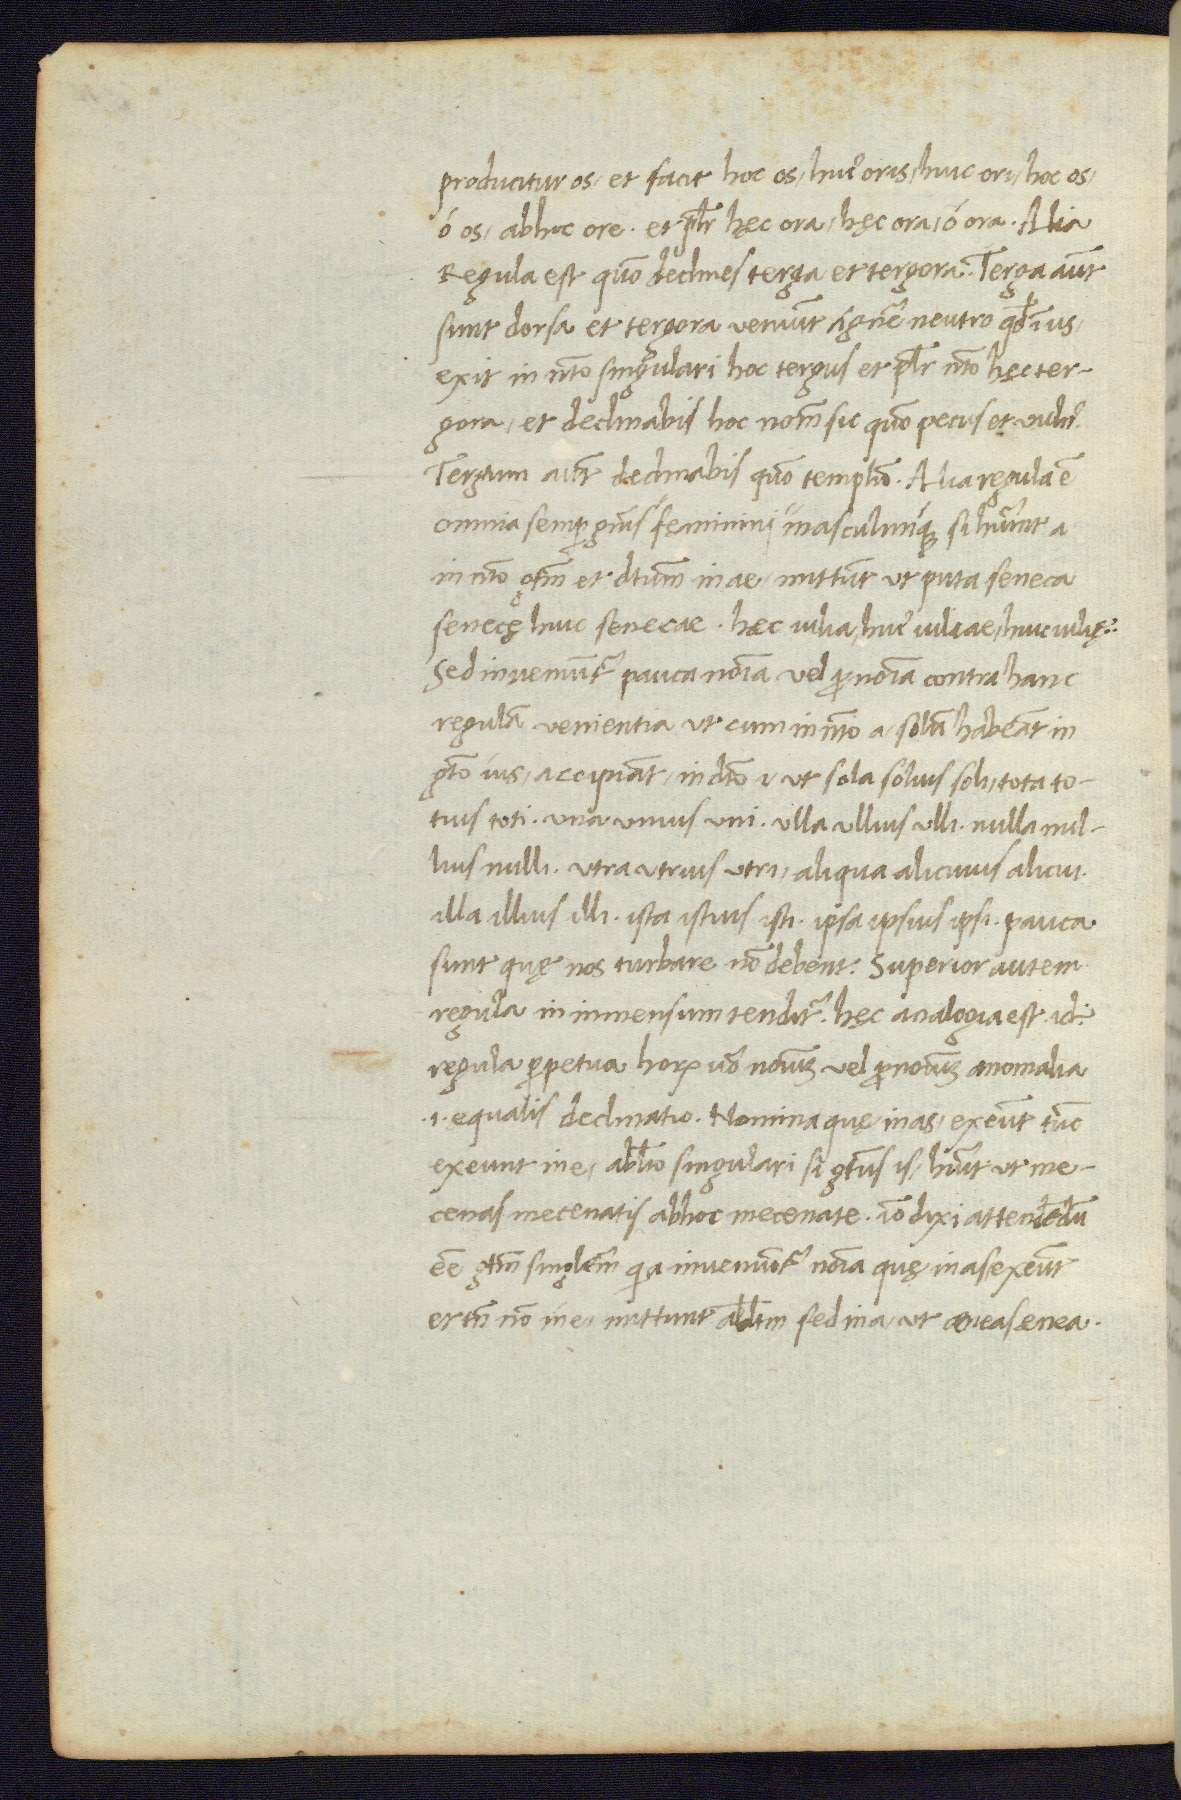 producitur os, et facit hoc os, huiꝰ oris, huic ori, hoc os,
ó os, abhoc ore. et plr̄ hęc ora, hęc ora, ó ora. Alia
Regula est quō declines terga et tergora. Terga aūt
sunt dorsa et tergora veniūt neutro us,
exit in nt̄o singulari hoc tergus et plr̄ nt̄o hęc ter-
gora, et declinabis hoc nom̄ sic quō pecus et vulnꝰ
Tergum aūt declinabis quō templū. Alia regula ē
omnia semꝑ gn̄is fęminini masculiniqꝫ si hn̄t a
in nt̄o gtm̄ et dtīum in ae, mittūt ut puta seneca
senecę huic senecae. hęc iulia, huiꝰ iuliae, huic iulię.
Sed inveniūtꝛ pauca noīa vel ꝓnoīa contra hanc
regulā venientia ut cum in nt̄o a, solā habeāt in
gt̄o ius, accipiāt, in dt̄o i ut sola solius soli, tota to-
tius toti. una unius uni. ulla ullius ulli. nulla nul-
lius nulli. utra utrius utri, aliqua alicuius alicui.
illa illius illi. ista istius isti. ipsa ipsius ipsi. pauca
sunt quę nos turbare nō debent. Superior autem
regula in inmensum tenditꝛ. hęc analogia est .id.
regula ꝑpetua horꝝ uō noīuꝫ vel ꝓnoīuꝫ anomalia
.i. equalis declinatio. Nomina quę in as, exeūt tūc
exeunt in e, abltō singulari si gt̄us is, hn̄t ut me-
cenas mecenatis abhoc mecenate. iō dixi attendēdū
ēē gtm̄ singlem̄ quia inveniūtꝛ noīa quę in as exeūt
et tn̄ nō in e, mittunt abltm̄ sed in a, ut aeneas enea.